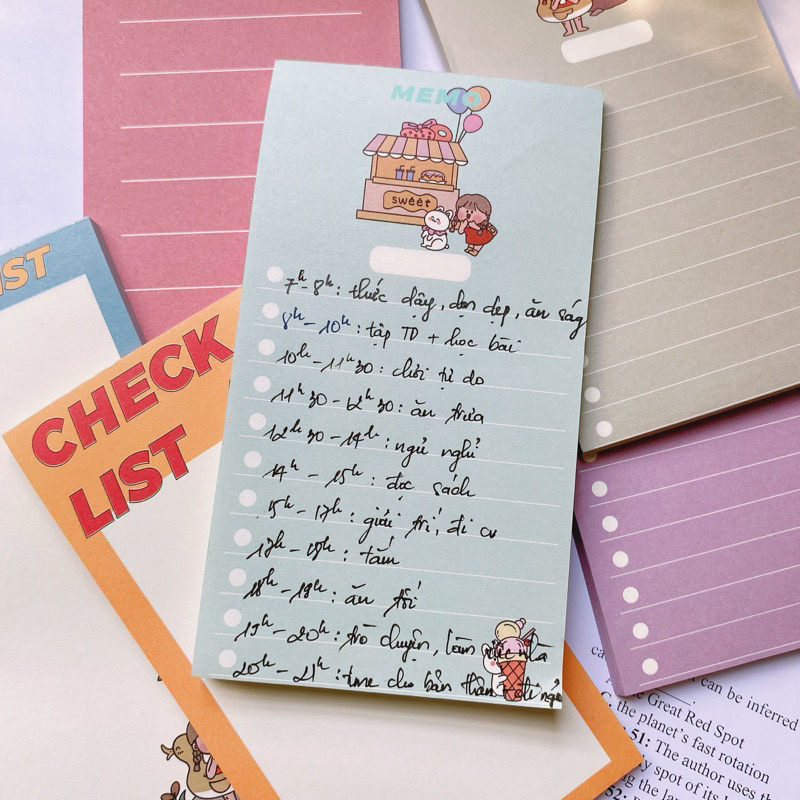 MEMO
sweet
7h - 8h : thức dậy, dọn dẹp, ăn ság
8h - 10h : tập TD + học bài
10h - 11h30 : chơi tự do
11h30 - 12h30 : ăn trưa
12h30 - 14h : ngủ nghỉ
14h - 15h : đọc sách
15h - 17h : giải trí, đi
17h - 18h : tắm
18h - 19h : ăn tối
19h - 20h : trò chuyện, làm việc nhà
20h - 21h : time cho bản thân
IST
CHECK
LIST
can be inferred
Great Red Spot
the planet's fast rotation
51: The author uses th
spot of its
52: